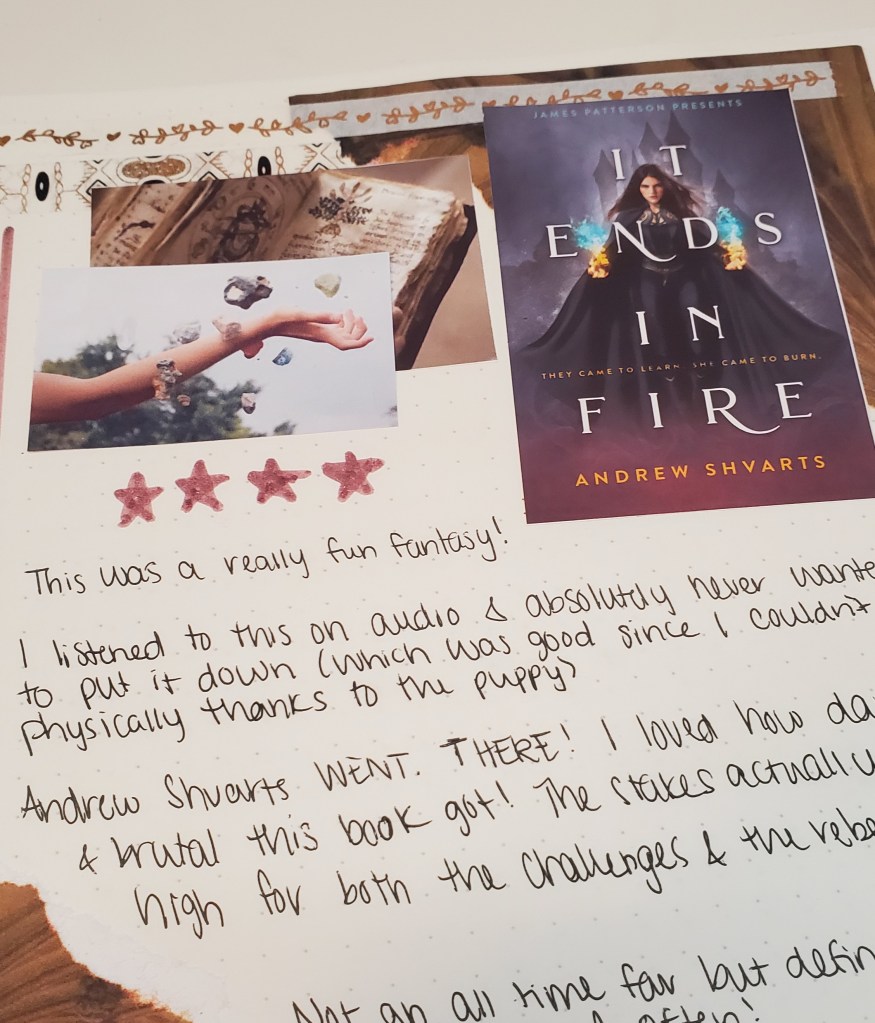 JAMES PATTERSON PRESENTS
IT
ENDS
IN
THEY CAME TO LEARN. SHE CAME TO BURN.
FIRE
ANDREW SHVARTS
This was a really fun fantasy!
I listened to this on audio & absolutely never
to put it down (which was good since I couldn't
physically thanks to the puppy)
Andrew Shvarts WENT. THERE! I loved how
& brutal this book got! The stakes actually
high for both the challenges & the
Not an all time fav but
often!